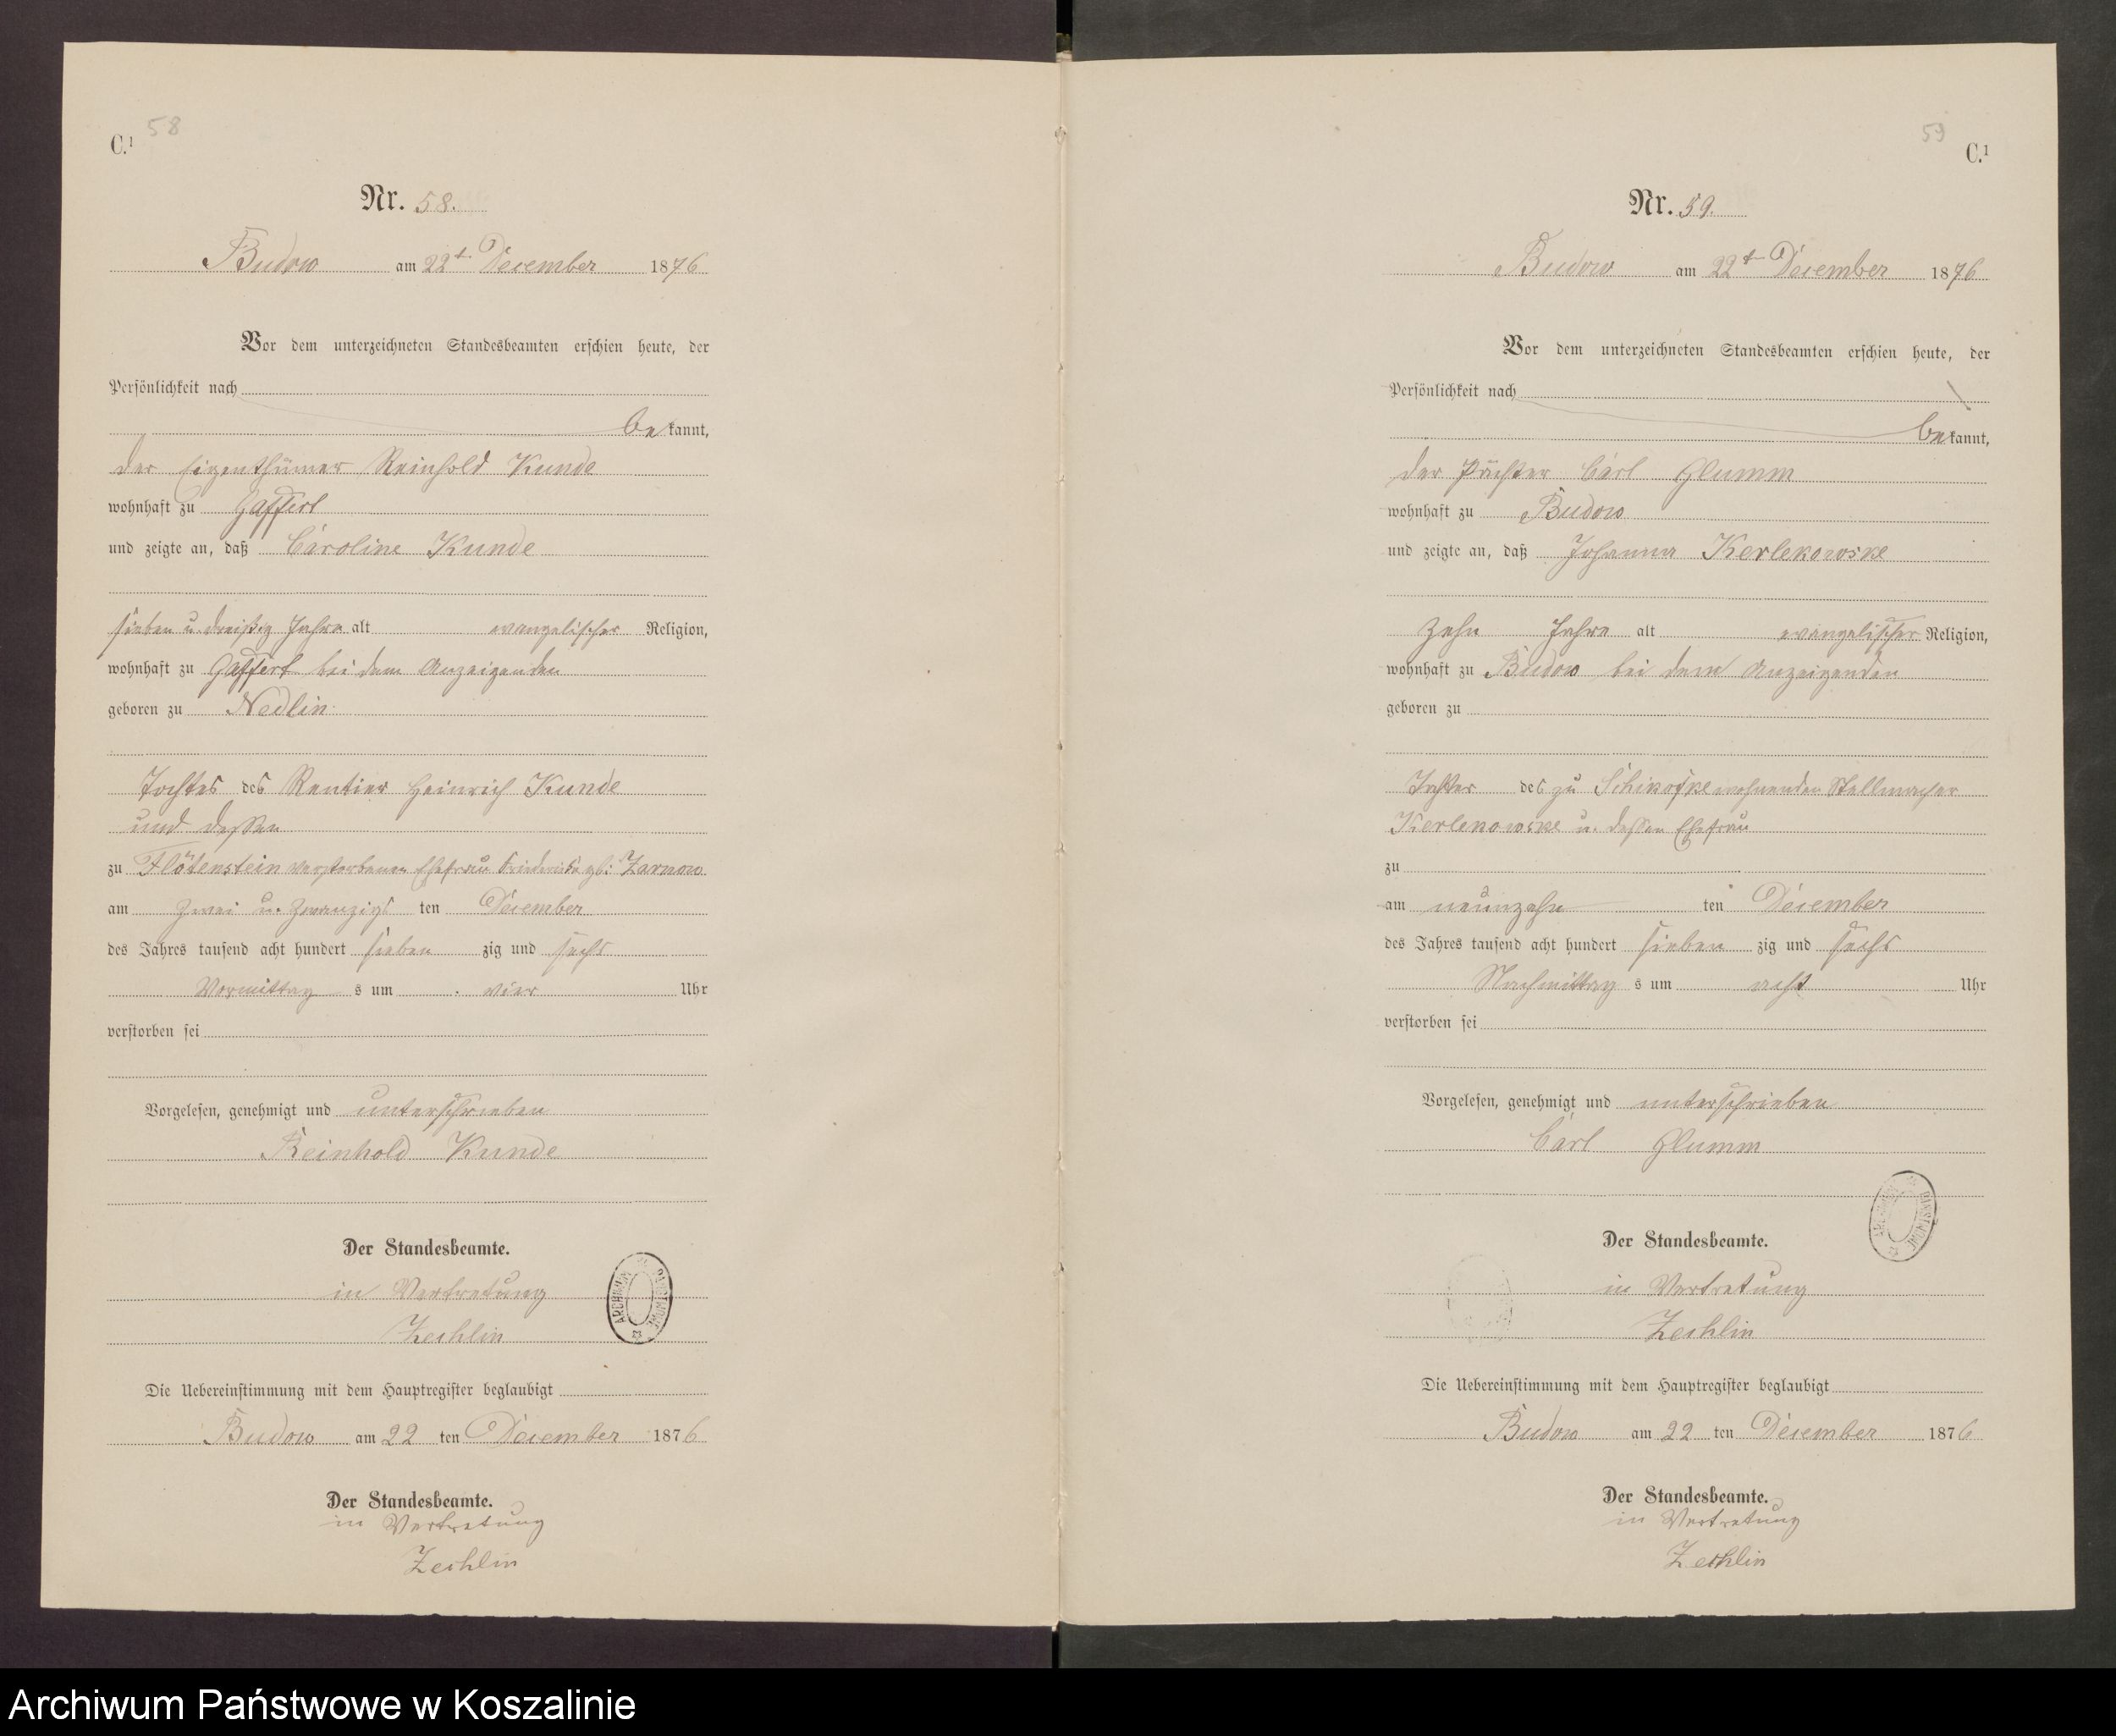 58
C.¹
Nr. 58.
Budow am 22t December 1876
Vor dem unterzeichneten Standesbeamten erschien heute, der
Persönlichkeit nach
bekannt,
der Eigenthümer Reinhold Kunde
wohnhaft zu Gaffert
und zeigte an, daß Caroline Kunde
sieben u. dreißig Jahre alt evangelischer Religion,
wohnhaft zu Gaffert bei dem Anzeigenden
geboren zu Nedlin
Tochter des Rentier Heinrich Kunde
und dessen
zu Flötenstein verstorbenen Ehefrau Friederike gb: Zarnow
am zwei u. zwanzigs ten December
des Jahres tausend acht hundert sieben zig und sechs
Vormittag s um vier Uhr
verstorben sei
Vorgelesen, genehmigt und unterschrieben
Reinhold Kunde
Der Standesbeamte.
in Vertretung
Zechlin
ARCHIWUM PAŃSTWOWE
Die Uebereinstimmung mit dem Hauptregister beglaubigt
Budow am 22 ten December 1876
Der Standesbeamte.
in Vertretung
Zechlin
59
C.¹
Nr. 59.
Budow am 22t December 1876
Vor dem unterzeichneten Standesbeamten erschien heute, der
Persönlichkeit nach
bekannt,
der Pächter Carl Glumm
wohnhaft zu Budow
und zeigte an, daß Johanna Kerlekowske
zehn Jahre alt evangelischer Religion,
wohnhaft zu Budow bei dem Anzeigenden
geboren zu
Tochter des zu wohnenden Stellmacher
Kerlekowske u. dessen Ehefrau
zu
am neunzehn ten December
des Jahres tausend acht hundert sieben zig und sechs
Nachmittag s um acht Uhr
verstorben sei
Vorgelesen, genehmigt und unterschrieben
Carl Glumm
ARCHIWUM PAŃSTWOWE
Der Standesbeamte.
in Vertretung
Zechlin
Die Uebereinstimmung mit dem Hauptregister beglaubigt
Budow am 22 ten December 1876
Der Standesbeamte.
in Vertretung
Zechlin
Archiwum Państwowe w Koszalinie